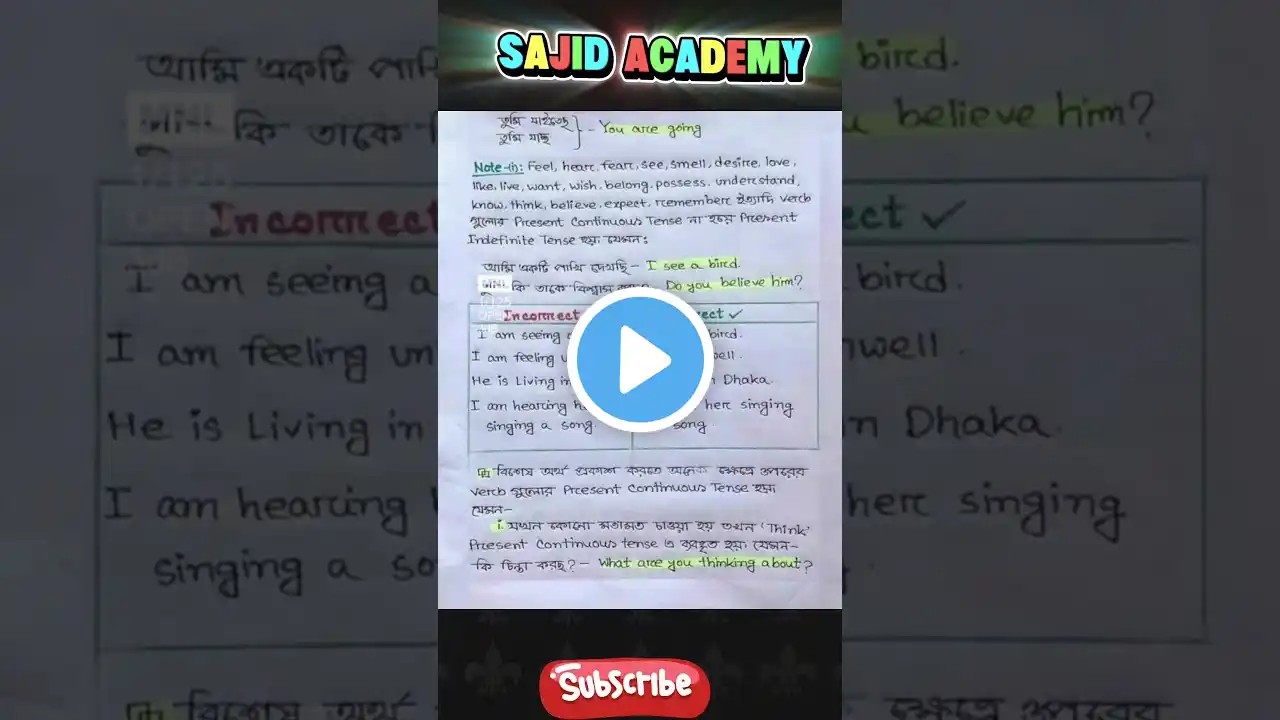 SAJID ACADEMY
তুমি যাইতেছ
তুমি যাচ্ছ } – You are going
Note-(i): Feel, hear, fear, see, smell, desire, love,
like, live, want, wish, belong, possess, understand,
know, think, believe, expect, remember ইত্যাদি verb
গুলোর Present Continuous Tense না হয়ে Present
Indefinite Tense হয়। যেমন:
আমি একটি পাখি দেখছি – I see a bird.
কি তাকে বিশ্বাস – Do you believe him?
Incorrect ect ✓
I am seeing a bird.
I am feeling un well.
He is Living in n Dhaka.
I am hearing h her singing
singing a song. song
বিশেষ অর্থ প্রকাশ করতে অনেক ক্ষেত্রে উপরের
verb গুলোর Present Continuous Tense হয়।
যেমন–
i. যখন কোনো মতামত চাওয়া হয় তখন 'Think'
Present Continuous tense এ ব্যবহৃত হয়। যেমন–
কি চিন্তা করছ? – What are you thinking about?
Subscribe